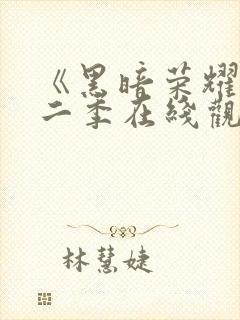 《黑暗荣耀
二季在线觀
林慧婕